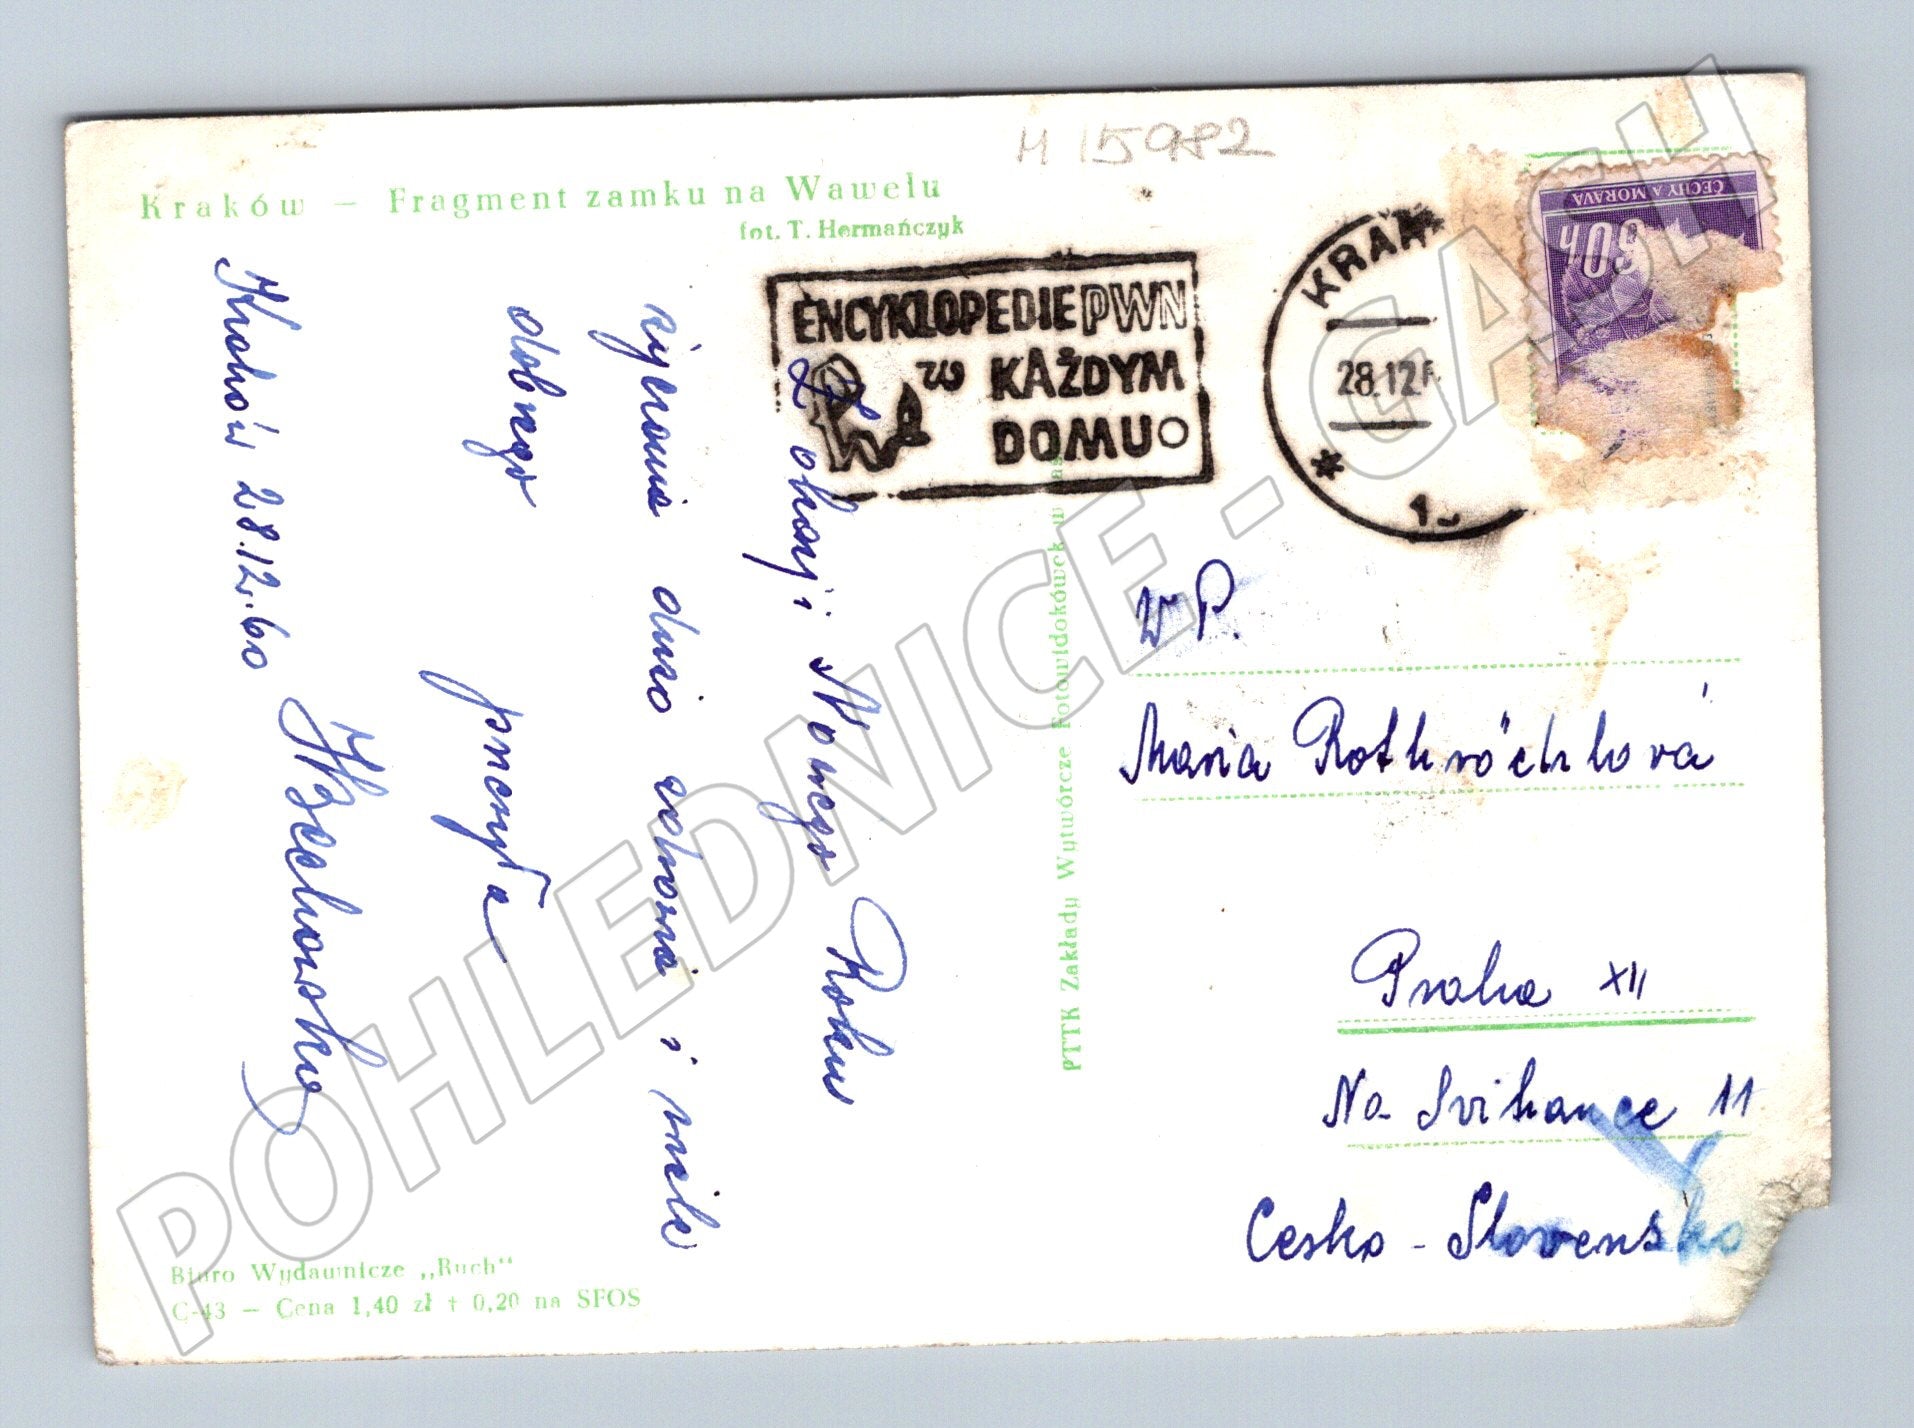 M 15982
Kraków — Fragment zamku na Wawelu
fot. T. Hermańczyk
ENCYKLOPEDIE PWN
w KAŻDYM
DOMU
KRAK
28.12.6
ČECHY A MORAVA
60h
Z okazji Nowego Roku
życzenia dużo zdrowia i wiele
dobrego
przesyła
Kraków 28.12.60
PTTK Zakłady Wytwórcze Fotowidokówek w
WP.
Maria Rothröcklová
Praha XII
Na Švihance 11
Cesko - Slovensko
Biuro Wydawnicze „Ruch"
C-43 — Cena 1,40 zł + 0,20 na SFOS
POHLEDNICE - GASH